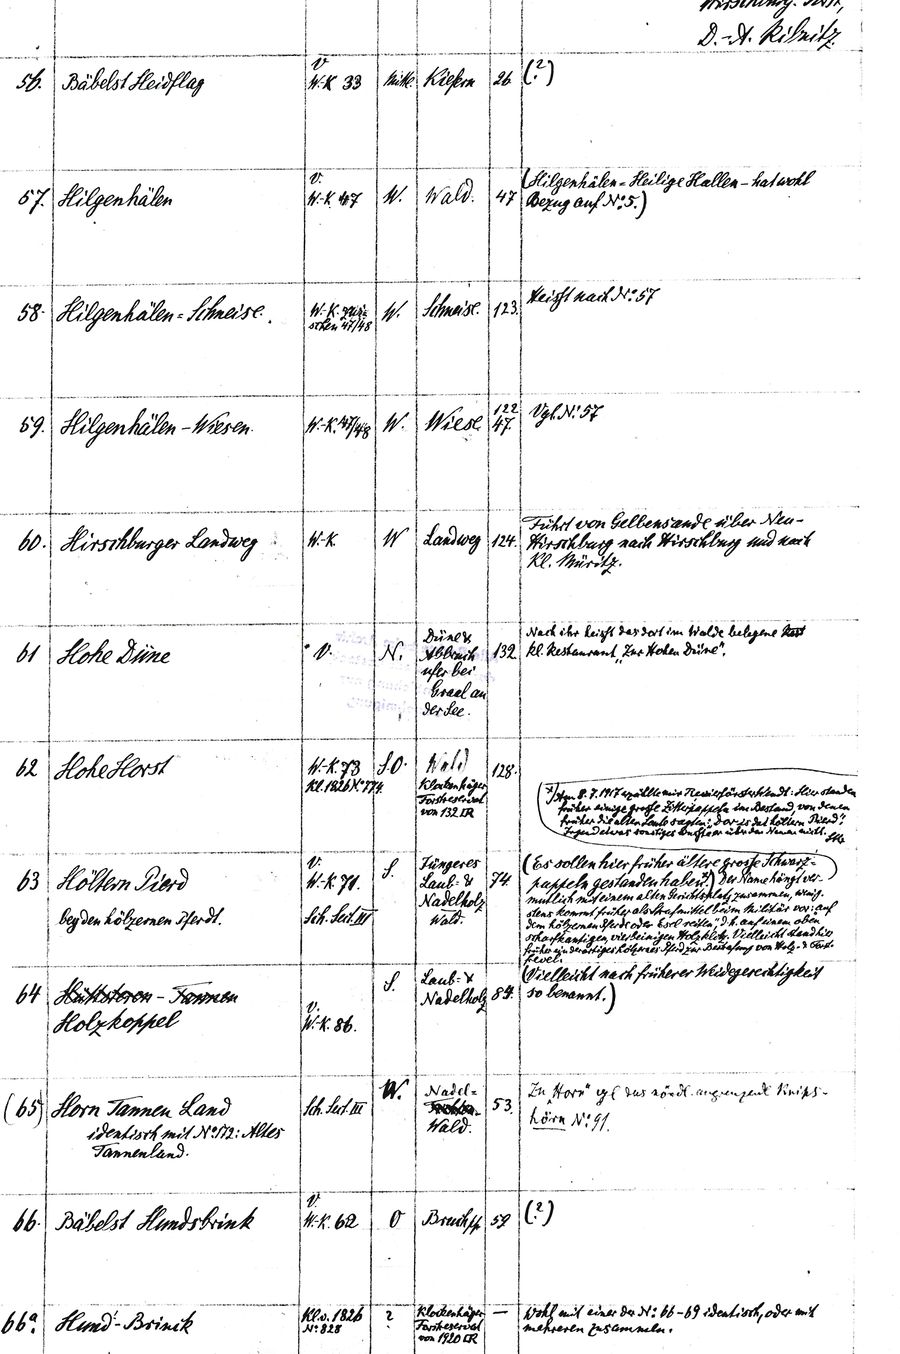 D.-A. Ribnitz.
56. Bäbelst Heidflag
V.
W.-K 33
Mitte
Kiefern
26
(?)
57. Hilgenhälen
V.
W.-K 47
W.
Wald.
47
(Hilgenhälen = Heilige Hallen - hat wohl
Bezug auf No. 5.)
58. Hilgenhälen = Schneise.
W.-K. zwi-
schen 47/48
W.
Schneise.
123.
Heißt nach No. 57
59. Hilgenhälen - Wiesen.
W.-K. 47/48
W.
Wiese.
122
47.
Vgl. No. 57
60. Hirschburger Landweg
W.-K
W
Landweg
124.
Führt von Gelbensande über Neu-
Hirschburg nach Hirschburg und nach
Kl. Müritz.
61 Hohe Düne
V.
N.
Düne &
Abbruch
ufer bei
Graal an
der See.
132
Nach ihr heißt das dort im Walde belegene
kl. Restaurant „Zur Hohen Düne".
62 Hohe Horst
W.-K. 73
Kl. 1826 No. 774
S.O.
Wald
Klockenhäger
Forstreservat
von 132 □R
128.
*) Am 8.7.1917 erzählte mir Revierförster Wendt: Hier standen
früher einige große Zitterpappeln im Bestand, von denen
früher die alten Leute sagten: „Dor is dat höltern Pierd".
Irgend etwas sonstiges wußte er über den Namen nicht.
63 Höltern Pierd
bey den hölzernen Pferdt.
V.
W.-K. 71.
Sch. Sect. III
S.
Jüngeres
Laub- &
Nadelholz
Wald.
74.
(Es sollen hier früher ältere große Schwarz-
pappeln gestanden haben.*) Der Name hängt ver-
mutlich mit einem alten Gerichtsplatz zusammen, wenig-
stens kommt früher als Strafmittel beim Militär vor: auf
dem hölzernen Pferde oder Esel reiten", d.h. auf einem oben
scharfkantigen, vierbeinigen Holzklotz. Vielleicht stand hier
früher ein derartiges hölzernes Pferd zur Bestrafung von Holz- & Forst-
frevel.
64 - Tannen
Holzkoppel
V.
W.-K. 86.
S.
Laub- &
Nadelholz
84.
(Vielleicht nach früherer Weidegerechtigkeit
so benannt.)
(65) Horn Tannen Land
identisch mit No. 172: Altes
Tannenland.
Sch. Sect. III
W.
Nadel =
Wald.
53.
Zu „Horn" vgl. das nördl. angrenzende Knips-
hörn No. 91.
66. Bäbelst Hundsbrink
V.
W.-K. 62
O
Bruch
52
(?)
66a. Hund-Brink
Kl. v. 1826
No. 828
?
Klockenhäger
Forstreservat
von 1920 □R
—
Wohl mit einer der No. 66-69 identisch, oder mit
mehreren zusammen.